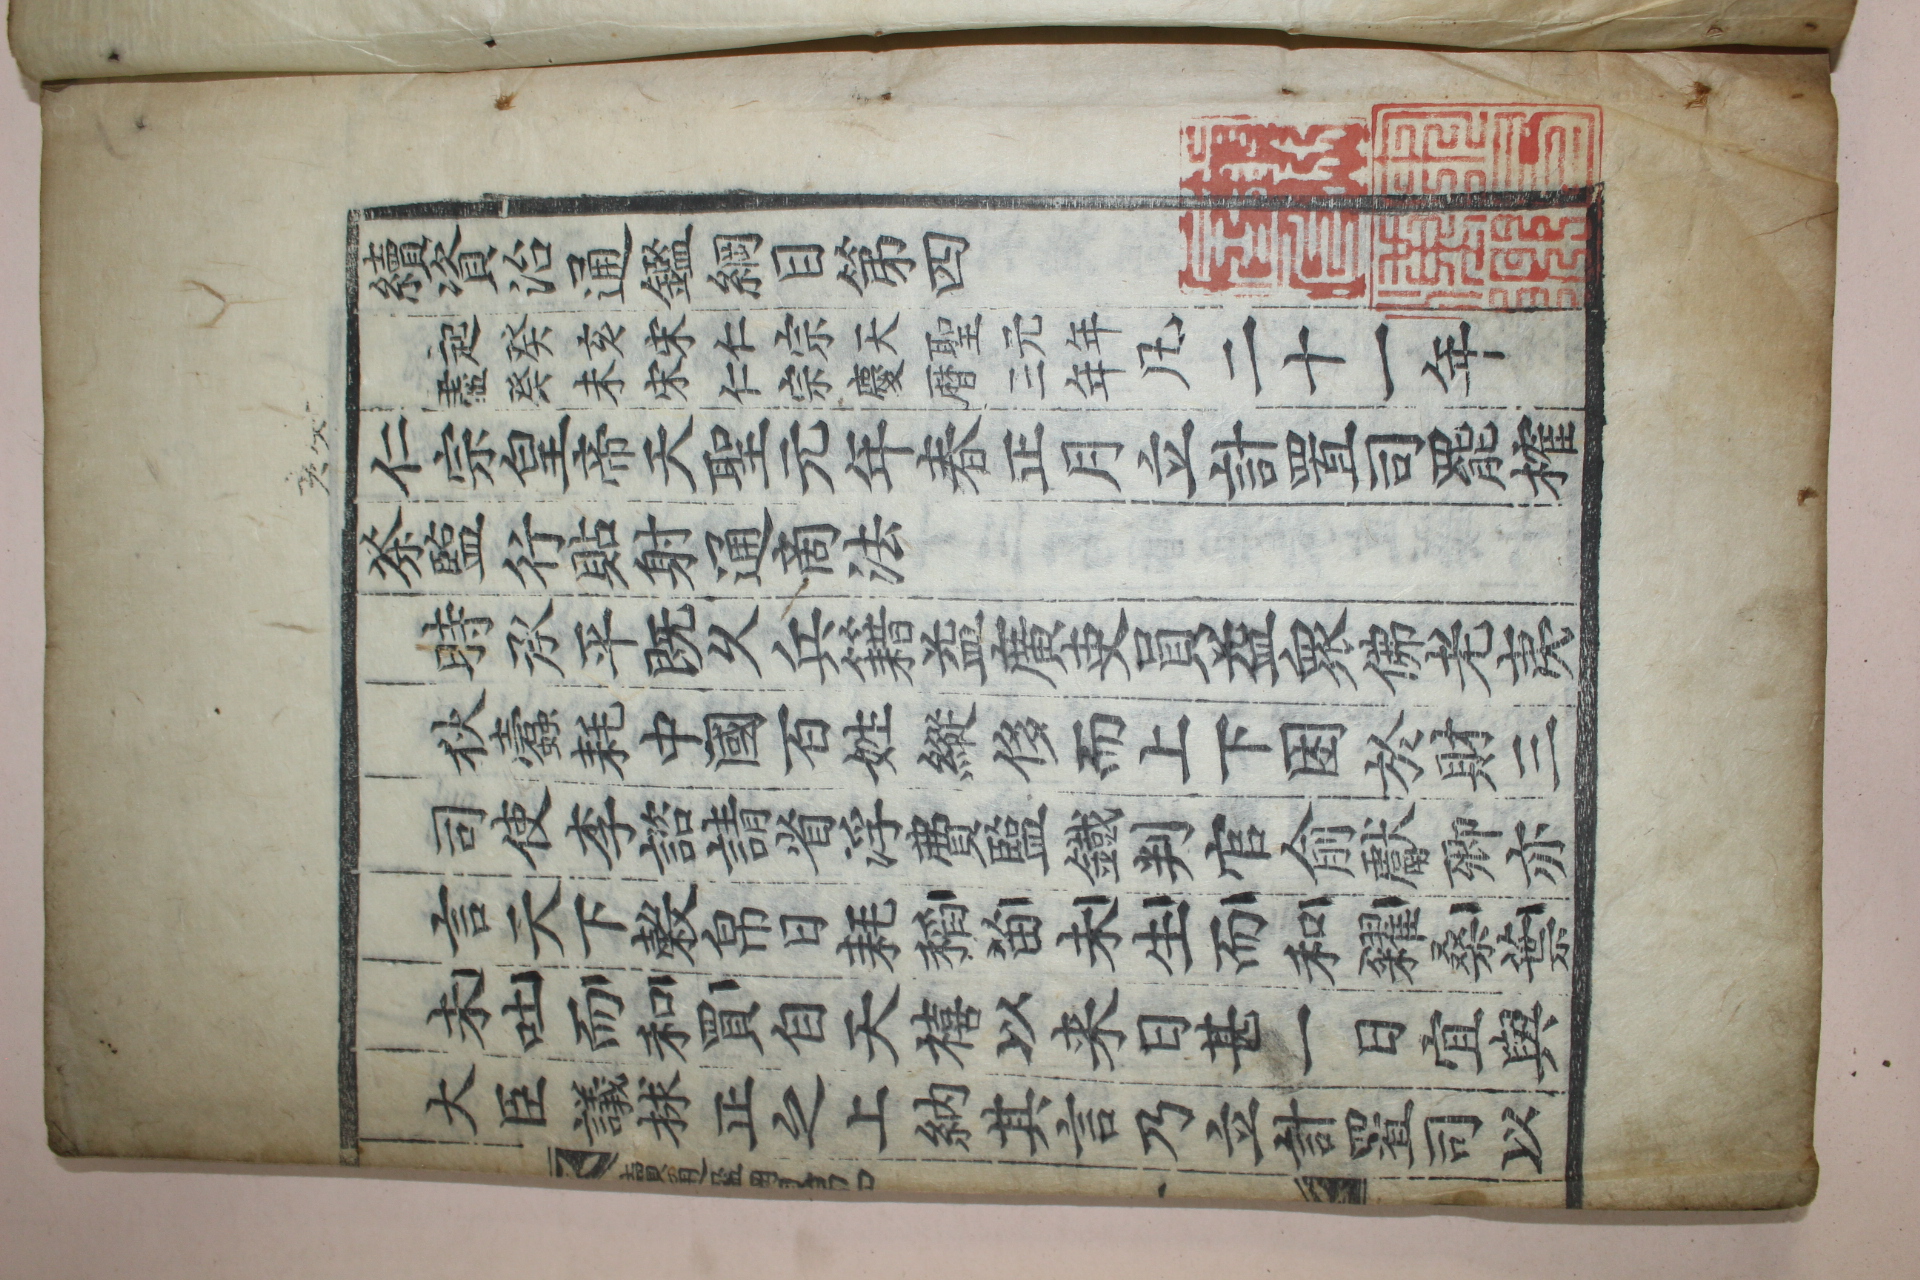 續資治通鑑綱目第四
起癸亥宋仁宗天聖元年
盡癸未宋仁宗慶曆三年
凡二十一年
仁宗皇帝天聖元年春正月立計置司罷榷
茶鹽行貼射通商法
時承平既久兵籍益廣吏員益衆佛老夷
狄蠹耗中國百姓縱侈而上下困於財三
司使李諮請省浮費鹽鐵判官俞獻卿亦
言天下穀帛日耗稻苗未生而和糴桑葉
未吐而和買自天禧以来日甚一日宜與
大臣議捄正之上納其言乃立計置司以